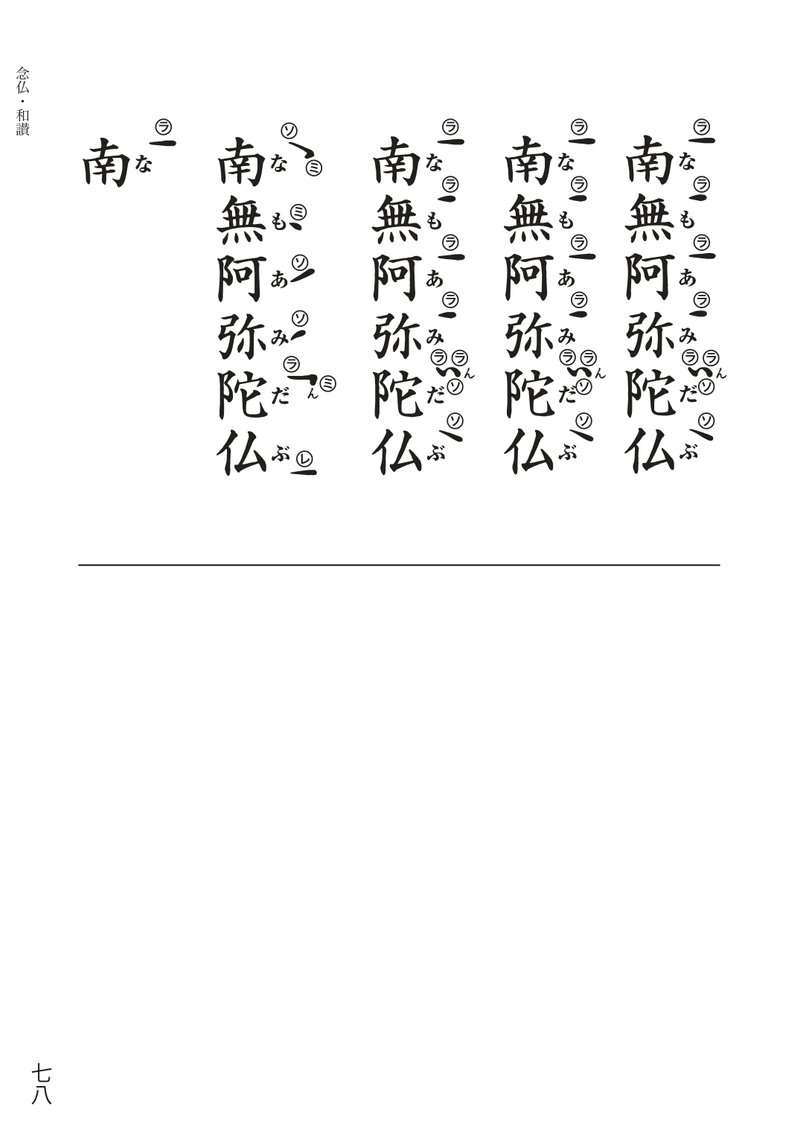 念仏・和讃
南無阿弥陀仏
な も あ み だ ん ぶ
ラ ラ ラ ラ ラ ラ ソ ソ
南無阿弥陀仏
な も あ み だ ん ぶ
ラ ラ ラ ラ ラ ラ ソ ソ
南無阿弥陀仏
な も あ み だ ん ぶ
ラ ラ ラ ラ ラ ラ ソ ソ
南無阿弥陀仏
な も あ み だ ん ぶ
ソ ミ ミ ソ ソ ラ ミ レ
南
な
ラ
七八